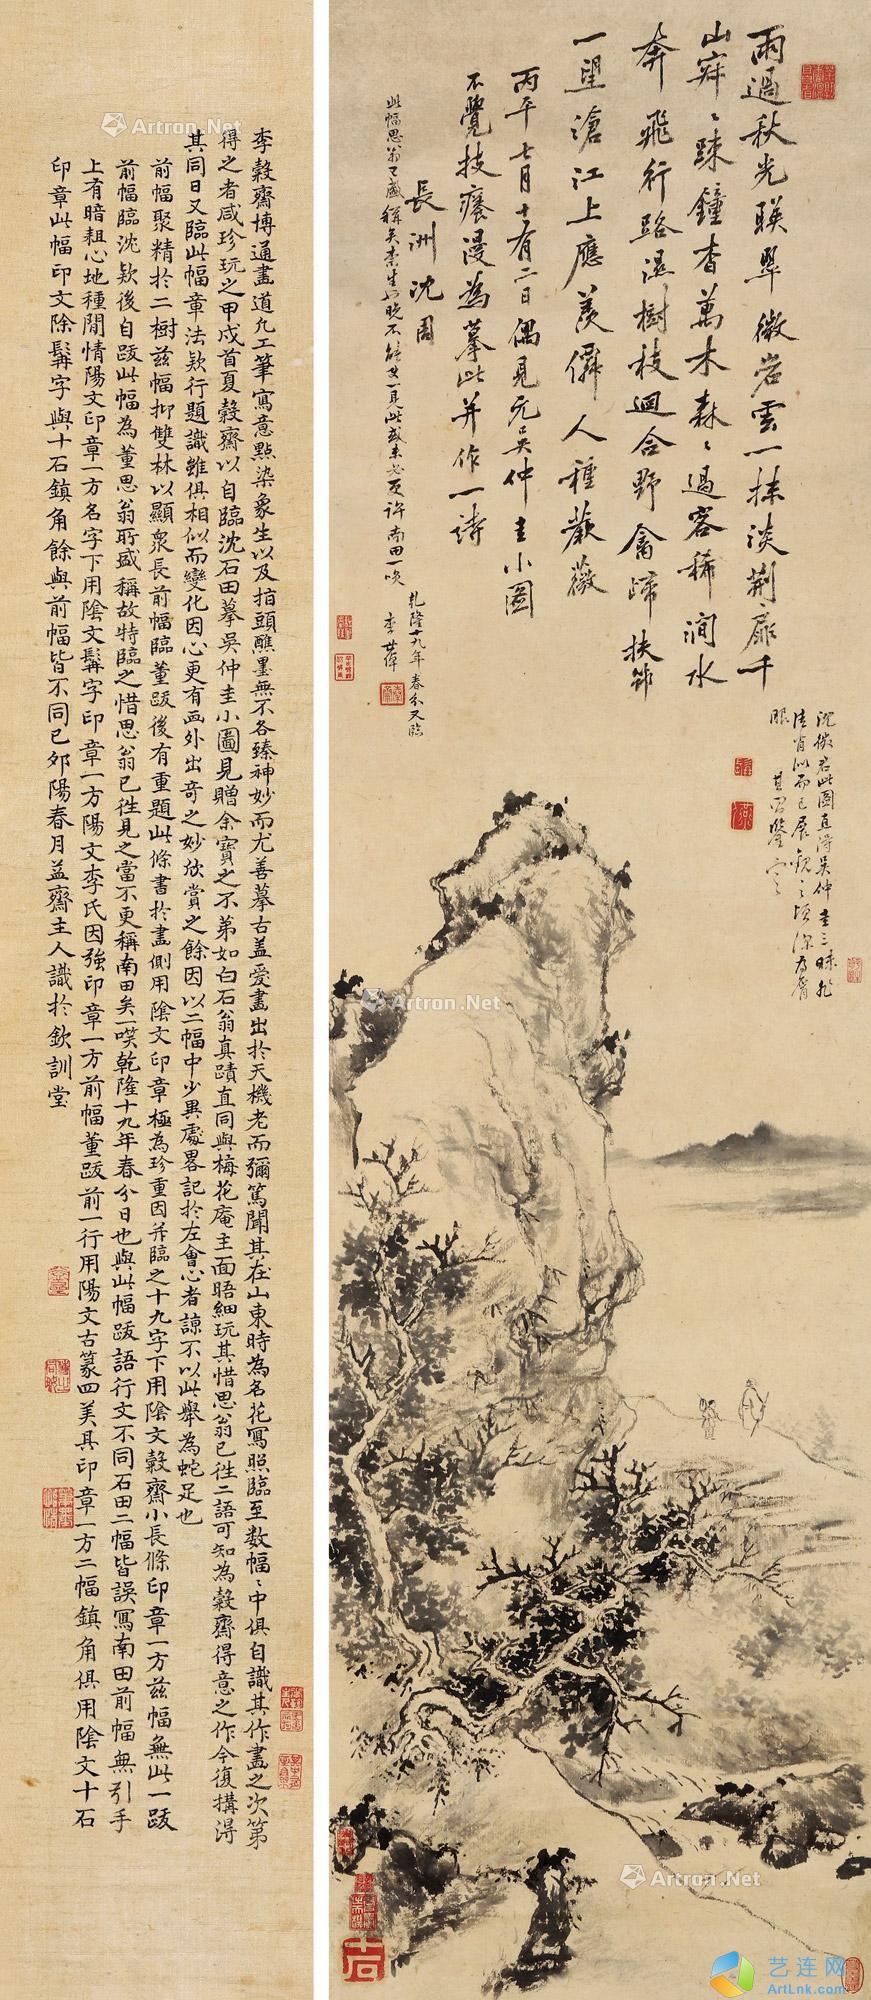 雨過秋光暎翠微岩雲一抹淡荆扉千
山寂〻踈鐘杳萬木森〻過客稀澗水
奔飛行路濕樹枝迴合野禽啼扶筇
一望滄江上應羨儞人種蕨薇
丙午七月十有二日偶見元吳仲圭小圖
不覺技癢漫為摹此并作一詩
長洲沈周
此幅思翁已盛稱矣李生
乾隆十九年春分又臨
李世倬
沈徵君此圖直得吳仲圭三昧非
李穀齋博通畫道凢工筆寫意點染象生以及指頭醮墨無不各臻神妙而尤善摹古盖愛畫出於天機老而彌篤聞其在山東時為名花寫照臨至数幅〻中俱自識其作畫之次第
得之者咸珍玩之甲戍首夏穀齋以自臨沈石田摹吳仲圭小圖見贈余寶之不苐如白石翁真蹟直同與梅花庵主面晤細玩其惜思翁已徃二語可知為穀齋得意之作今復搆得
其同日又臨此幅章法欵行題識雖俱相似而變化因心更有画外出奇之妙欣賞之餘因以二幅中少異處畧記於左會心者諒不以此舉為蛇足也
前幅聚精於二樹兹幅抑雙林以顯衆長前幅臨董跋後有重題此條書於畫側用陰文印章極為珍重因并臨之十九字下用陰文穀齋小長條印章一方兹幅無此一跋
前幅臨沈欵後自跋此幅為董思翁所盛稱故特臨之惜思翁已徃見之當不更稱南田矣一噗乾隆十九年春分日也與此幅跋語行文不同石田二幅皆誤寫南田前幅無引手
上有暗粗心地種閒情陽文印章一方名字下用陰文髯字印章一方陽文李氏因強印章一方前幅董跋前一行用陽文古篆四美具印章一方二幅鎮角俱用陰文十石
印章此幅印文除髯字與十石鎮角餘與前幅皆不同己夘陽春月益齋主人識於欽訓堂
Artron.Net
Artron.Net
Artron.Net
Artron.Net
Artron.Net
艺连网
ArtLnk.com